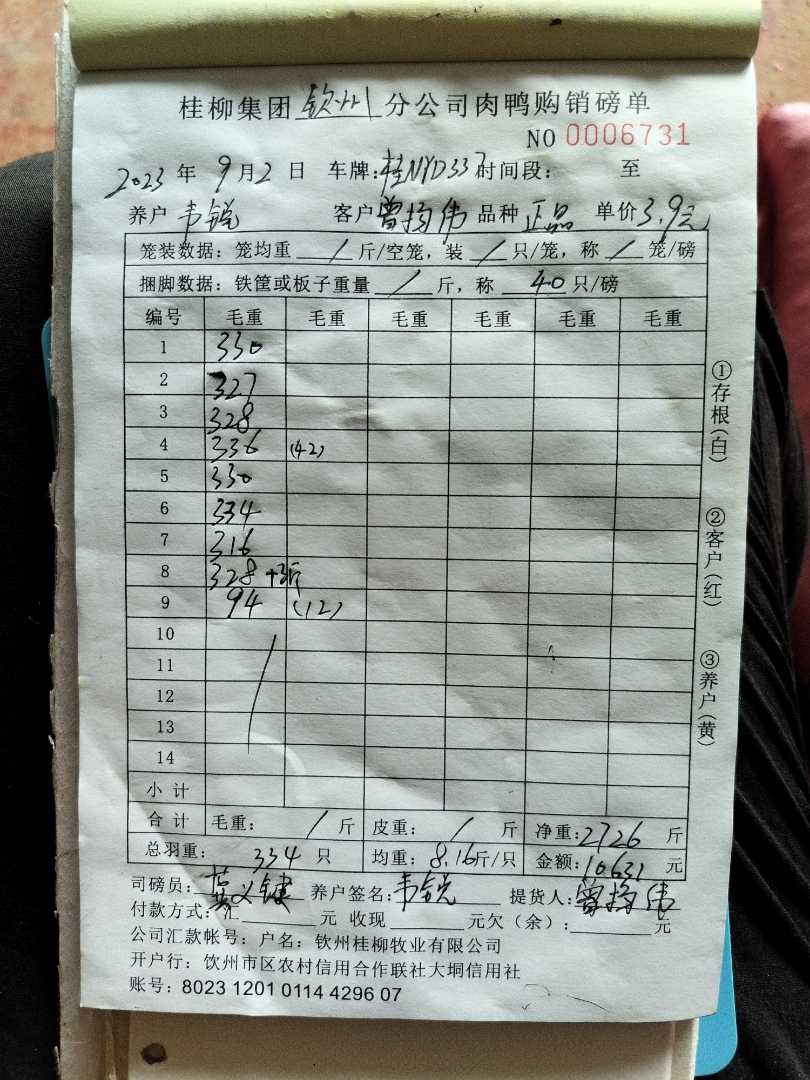 桂柳集团 钦州 分公司肉鸭购销磅单
NO 0006731
2023 年 9 月 2 日 车牌: 桂NYD337 时间段: 至
养户 韦锐 客户 曾扬伟 品种 正品 单价 3.9元
笼装数据: 笼均重 / 斤/空笼, 装 / 只/笼, 称 / 笼/磅
捆脚数据: 铁筐或板子重量 / 斤, 称 40 只/磅
编号 毛重 毛重 毛重 毛重 毛重 毛重
1 330
2 327
3 328
4 336 (42)
5 330
6 334
7 316
8 328 +3斤
9 94 (12)
10
11
12
13
14
小计
合计 毛重: / 斤 皮重: / 斤 净重: 2726 斤
总羽重: 334 只 均重: 8.16斤/只 金额: 10631 元
司磅员: 黄义键 养户签名: 韦锐 提货人: 曾扬伟
付款方式: 汇 元 收现 元欠(余): 元
公司汇款帐号: 户名: 钦州桂柳牧业有限公司
开户行: 饮州市区农村信用合作联社大垌信用社
账号: 8023 1201 0114 4296 07
①存根(白)
②客户(红)
③养户(黄)